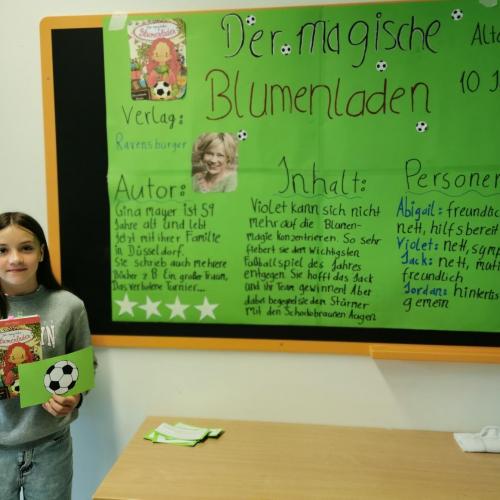 Der magische
Blumenladen
Blumenladen
Verlag:
Ravensburger
Autor:
Gina mayer ist 59
Jahre alt und lebt
jetzt mit ihrer Familie
in Düsseldorf.
Sie schreib auch mehrere
Bücher z B Ein großer Traum,
Das verbotene Turnier...
Inhalt:
Violet kann sich nicht
mehr auf die Blumen-
magie konzentrieren. So sehr
fiebert sie den Wichtigsten
Fußballspiel des Jahres
entgegen Sie hofft das Jack
und ihr Team gewinnen! Aber
dabei begegnet sie den Stürmer
mit den Schokobraunen Augen
Alte
10 J
Personen
Abigail: freundlich
nett, hilfsbereit
Violet: nett, symp
Jack: nett, mut
freundlich
Jordan: hinterlis
gemein
Blumenladen